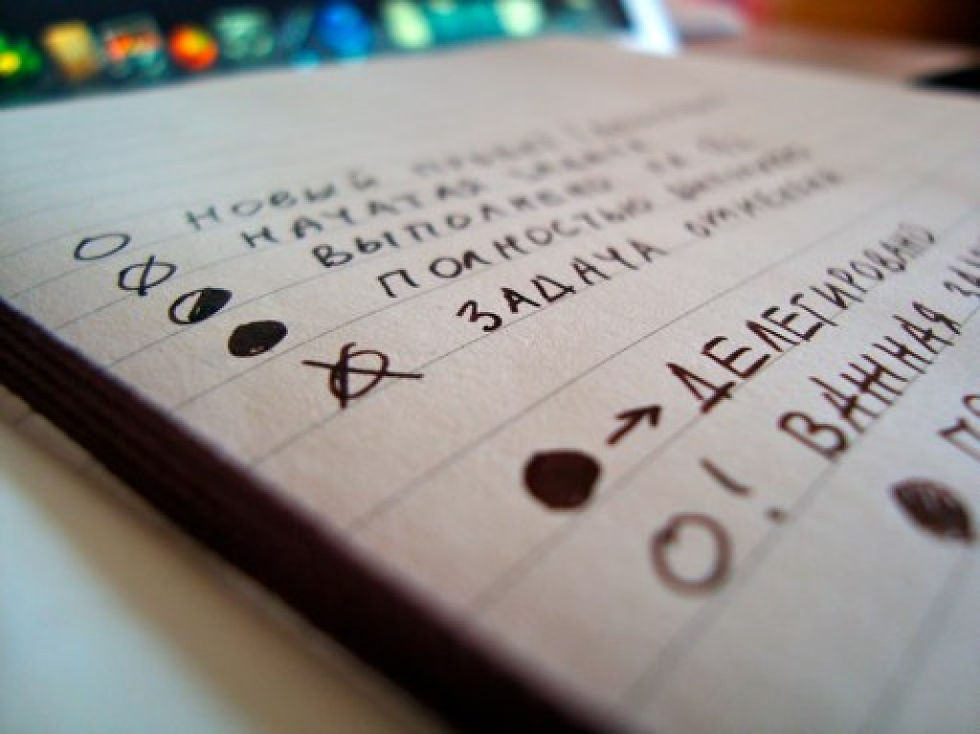 НОВЫЙ ПРОЕКТ
НАЧАТАЯ ЗАДАЧА
ВЫПОЛНЕНО НА 1/2
ПОЛНОСТЬЮ ВЫПОЛНЕНО
ЗАДАЧА ОТМЕНЕНА
→ ДЕЛЕГИРОВАНО
! ВАЖНАЯ